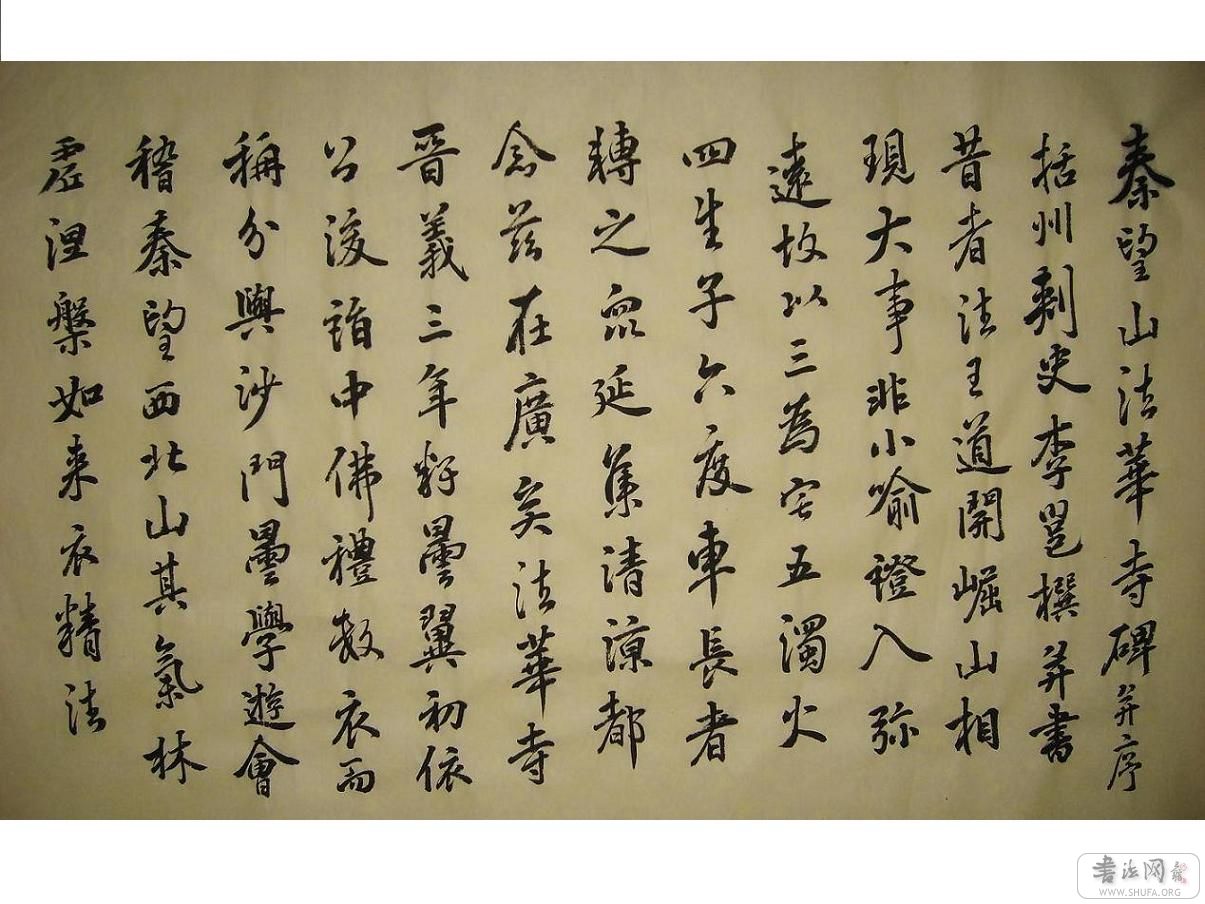 秦望山法華寺碑并序
括州刺史李邕撰并書
昔者法王道開崛山相
現大事非小喻證入弥
遠故以三為宅五濁火
四生子六度車長者
轉之眾延集清涼都
念茲在廣矣法華寺
晉義三年釋曇翼初依
公後詣中佛禮数衣而
稱分與沙門曇學遊會
稽秦望西北山其氣林
虛涅槃如来衣精法
書法网
WWW.SHUFA.ORG